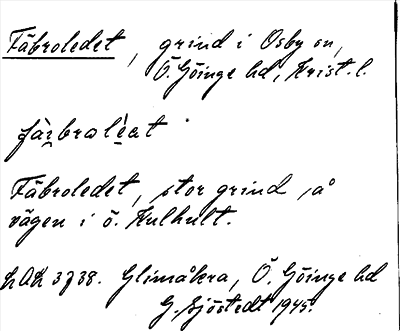 Fäbroledet, grind i Osby sn,
Ö. Göinge hd, Krist. l.
fàrbraléat
Fäbroledet, stor grind å
vägen i ö. Kulhult.
LAK 3738. Glimåkra, Ö. Göinge hd
G. Sjöstedt 1945.